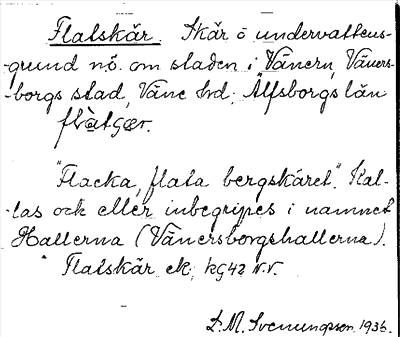 Flatskär. Skär o undervattens-
-grund nö. om staden i Vänern, Väners-
-borgs stad, Väne hrd, Älfsborgs län
"Flacka, flata bergskäret". Kal-
-las ock eller inbegripes i namnet
Hallerna (Vänersborgshallerna).
Flatskär ek; kG42 N.V.
D. M. Svenungsson 1936.